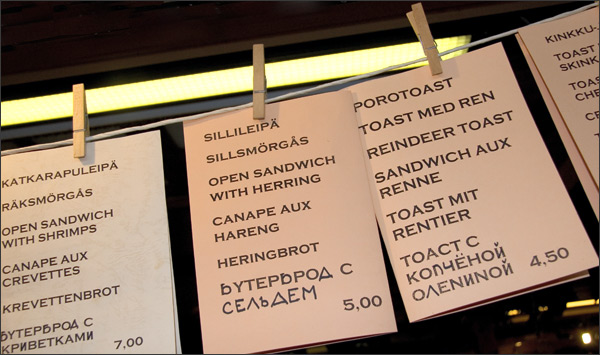 KATKARAPULEIPÄ
RÄKSMÖRGÅS
OPEN SANDWICH
WITH SHRIMPS
CANAPE AUX
CREVETTES
KREVETTENBROT
БУТЕРБРОД С
КРИВЕТКАМИ 7,00
SILLILEIPÄ
SILLSMÖRGÅS
OPEN SANDWICH
WITH HERRING
CANAPE AUX
HARENG
HERINGBROT
БУТЕРБРОД С
СЕЛЬДЕМ 5,00
POROTOAST
TOAST MED REN
REINDEER TOAST
SANDWICH AUX
RENNE
TOAST MIT
RENTIER
ТОАСТ С
КОПЧЁНОЙ
ОЛЕНИНОЙ 4,50
KINKKU-
TOAST
SKINK
TOAST